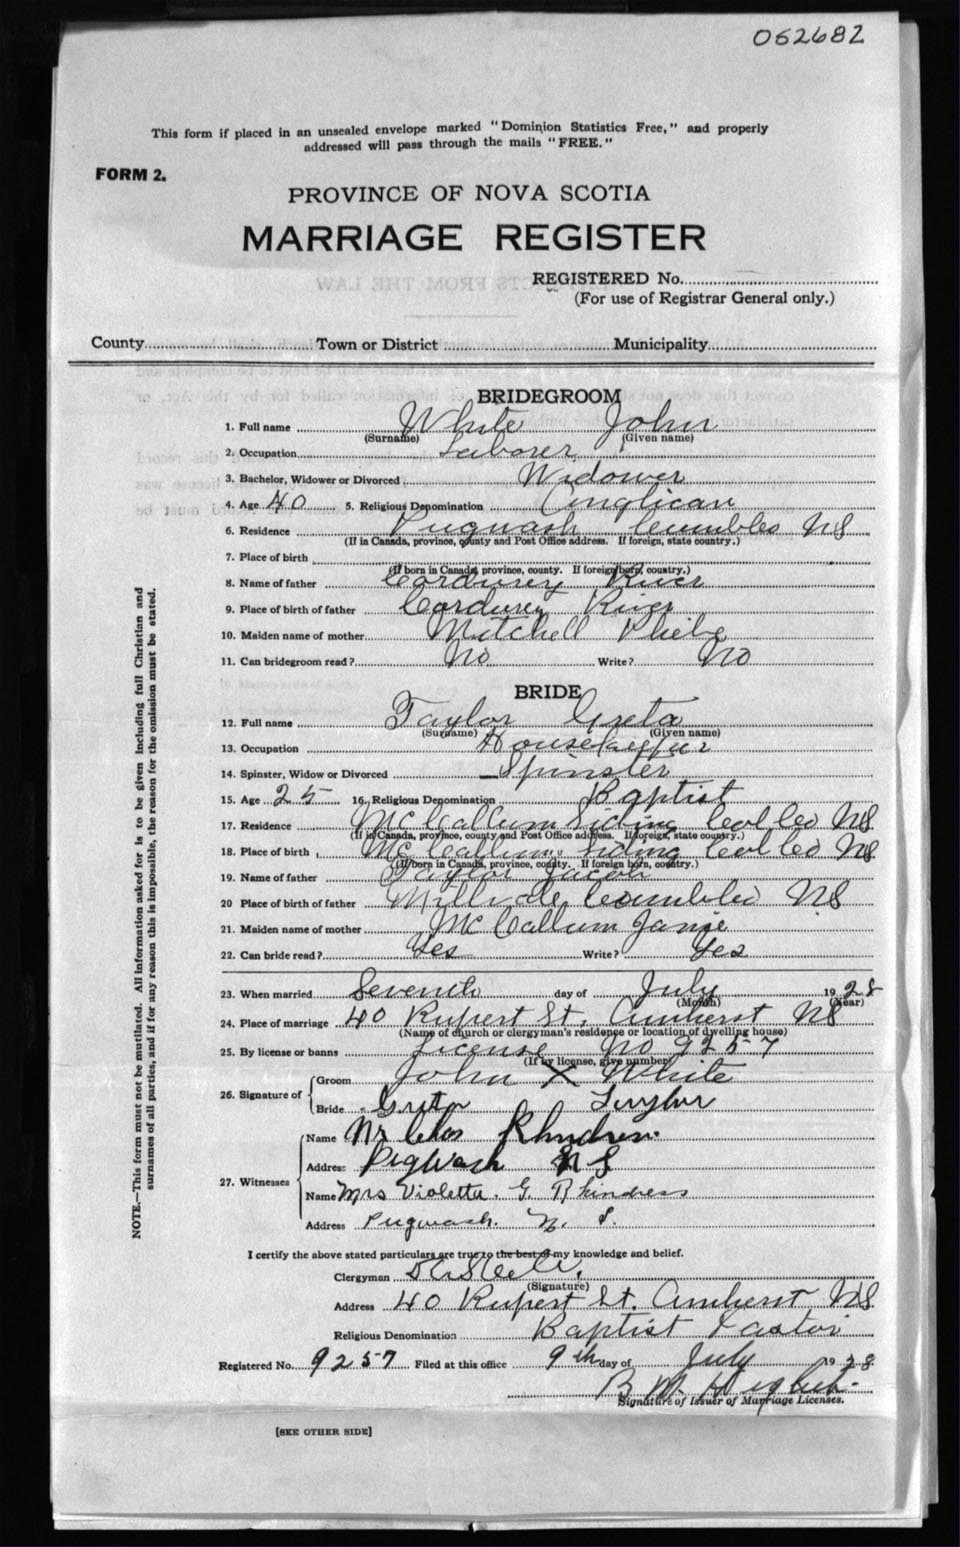 052682
This form if placed in an unsealed envelope marked "Dominion Statistics Free," and properly
addressed will pass through the mails "FREE."
FORM 2.
PROVINCE OF NOVA SCOTIA
MARRIAGE REGISTER
REGISTERED No.
(For use of Registrar General only.)
County Town or District Municipality
BRIDEGROOM
1. Full name White John
(Surname) (Given name)
2. Occupation Laborer
3. Bachelor, Widower or Divorced Widower
4. Age 40 5. Religious Denomination Anglican
6. Residence Pugwash Cumb Co NS
(If in Canada, province, county and Post Office address. If foreign, state country.)
7. Place of birth
(If born in Canada, province, county. If foreign born, country.)
8. Name of father Corduroy River
9. Place of birth of father Corduroy River
10. Maiden name of mother Mitchell Phiebe
11. Can bridegroom read? No Write? No
BRIDE
12. Full name Taylor Greta
(Surname) (Given name)
13. Occupation Housekeeper
14. Spinster, Widow or Divorced Spinster
15. Age 25 16. Religious Denomination Baptist
17. Residence McCallum Siding Col Co NS
(If in Canada, province, county and Post Office address. If foreign, state country.)
18. Place of birth McCallum Siding Col Co NS
(If born in Canada, province, county. If foreign born, country.)
19. Name of father Taylor Jacob
20 Place of birth of father Millvale Cumb Co NS
21. Maiden name of mother McCallum Janie
22. Can bride read? Yes Write? Yes
23. When married Seventh day of July 1928
(Month) (Year)
24. Place of marriage 40 Rupert St, Amherst NS
(Name of church or clergyman's residence or location of dwelling house)
25. By license or banns License No 9257
(If by license, give number)
26. Signature of
Groom John X White
Bride Greta Taylor
27. Witnesses
Name Mr Chas
Address Pugwash N S
Name Mrs Violetta. G. Rhindress
Address Pugwash. N. S.
I certify the above stated particulars are true to the best of my knowledge and belief.
Clergyman
(Signature)
Address 40 Rupert St. Amherst NS
Religious Denomination Baptist Pastor
Registered No. 9257 Filed at this office 9th day of July 1928
B M
Signature of Issuer of Marriage Licenses.
[SEE OTHER SIDE]
NOTE.—This form must not be mutilated. All information asked for is to be given including full Christian and
surnames of all parties, and if for any reason this is impossible, the reason for the omission must be stated.